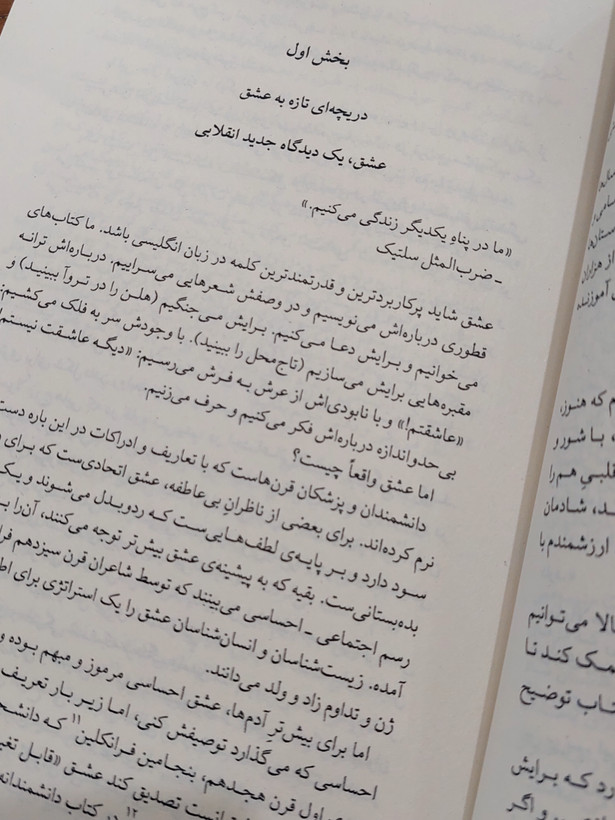 بخش اول
دریچه‌ای تازه به عشق
عشق، یک دیدگاه جدید انقلابی
«ما در پناهِ یکدیگر زندگی می‌کنیم.»
ـ ضرب‌المثل سلتیک
عشق شاید پرکاربردترین و قدرتمندترین کلمه در زبان انگلیسی باشد. ما کتاب‌های
قطوری درباره‌اش می‌نویسیم و در وصفش شعرهایی می‌سراییم. درباره‌اش ترانه
می‌خوانیم و برایش دعا می‌کنیم. برایش می‌جنگیم (هلن را در تروآ ببینید) و
مقبره‌هایی برایش می‌سازیم (تاج‌محل را ببینید). با وجودش سر به فلک می‌کشیم:
«عاشقتم!» و با نابودی‌اش از عرش به فرش می‌رسیم: «دیگه عاشقت نیستم!
بی‌حدواندازه درباره‌اش فکر می‌کنیم و حرف می‌زنیم.
اما عشق واقعاً چیست؟
دانشمندان و پزشکان قرن‌هاست که با تعاریف و ادراکات در این باره دست
نرم کرده‌اند. برای بعضی از ناظرانِ بی‌عاطفه، عشق اتحادی‌ست که برای
سود دارد و بر پایه‌ی لطف‌هایی‌ست که ردوبدل می‌شوند و یک
بده‌بستانی‌ست. بقیه که به پیشینه‌ی عشق بیش‌تر توجه می‌کنند، آن‌را
رسم اجتماعی ـ احساسی می‌بینند که توسط شاعران قرن سیزدهم
آمده. زیست‌شناسان و انسان‌شناسان عشق را یک استراتژی برای
ژن و تداوم زاد و ولد می‌دانند.
اما برای بیش‌تر آدم‌ها، عشق احساسی مرموز و مبهم بوده و
احساسی که می‌گذارد توصیفش کنی، اما زیر بار تعریف
اول قرن هجدهم، بنجامین فرانکلین۱۱ که
تصدیق کند عشق «قابل
۱۲ در کتاب دانشمندانه
که هنوز،
با شور و
قلبیِ هم را
شادمان
ارزشمندم با
می‌توانیم
کند تا
توضیح
که برایش
و اگر